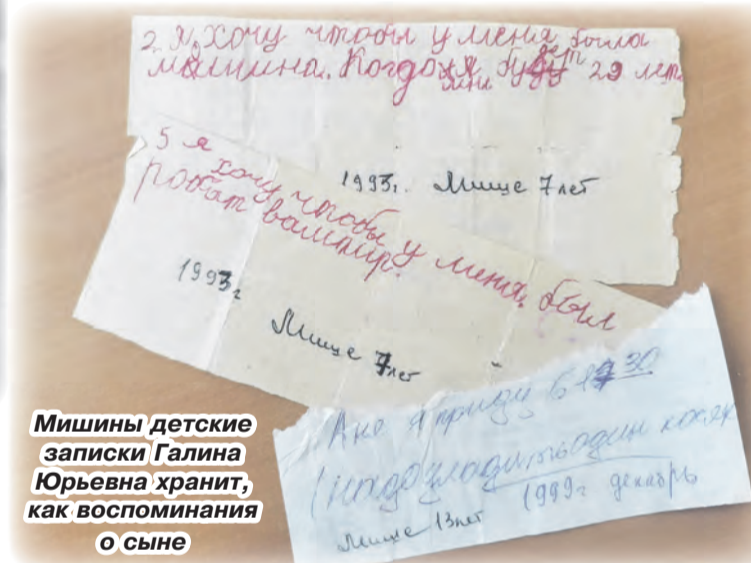 2 я хочу чтобы у меня была
машина. Когда мне будет 29 лет
1993г. Мише 7 лет
5 я хочу чтобы у меня был
робат вампир.
1993г
Мише 7 лет
Ане Я приду в 30
(надо згладить один косяк
1999г декабрь
Мише 13 лет
Мишины детские
записки Галина
Юрьевна хранит,
как воспоминания
о сыне